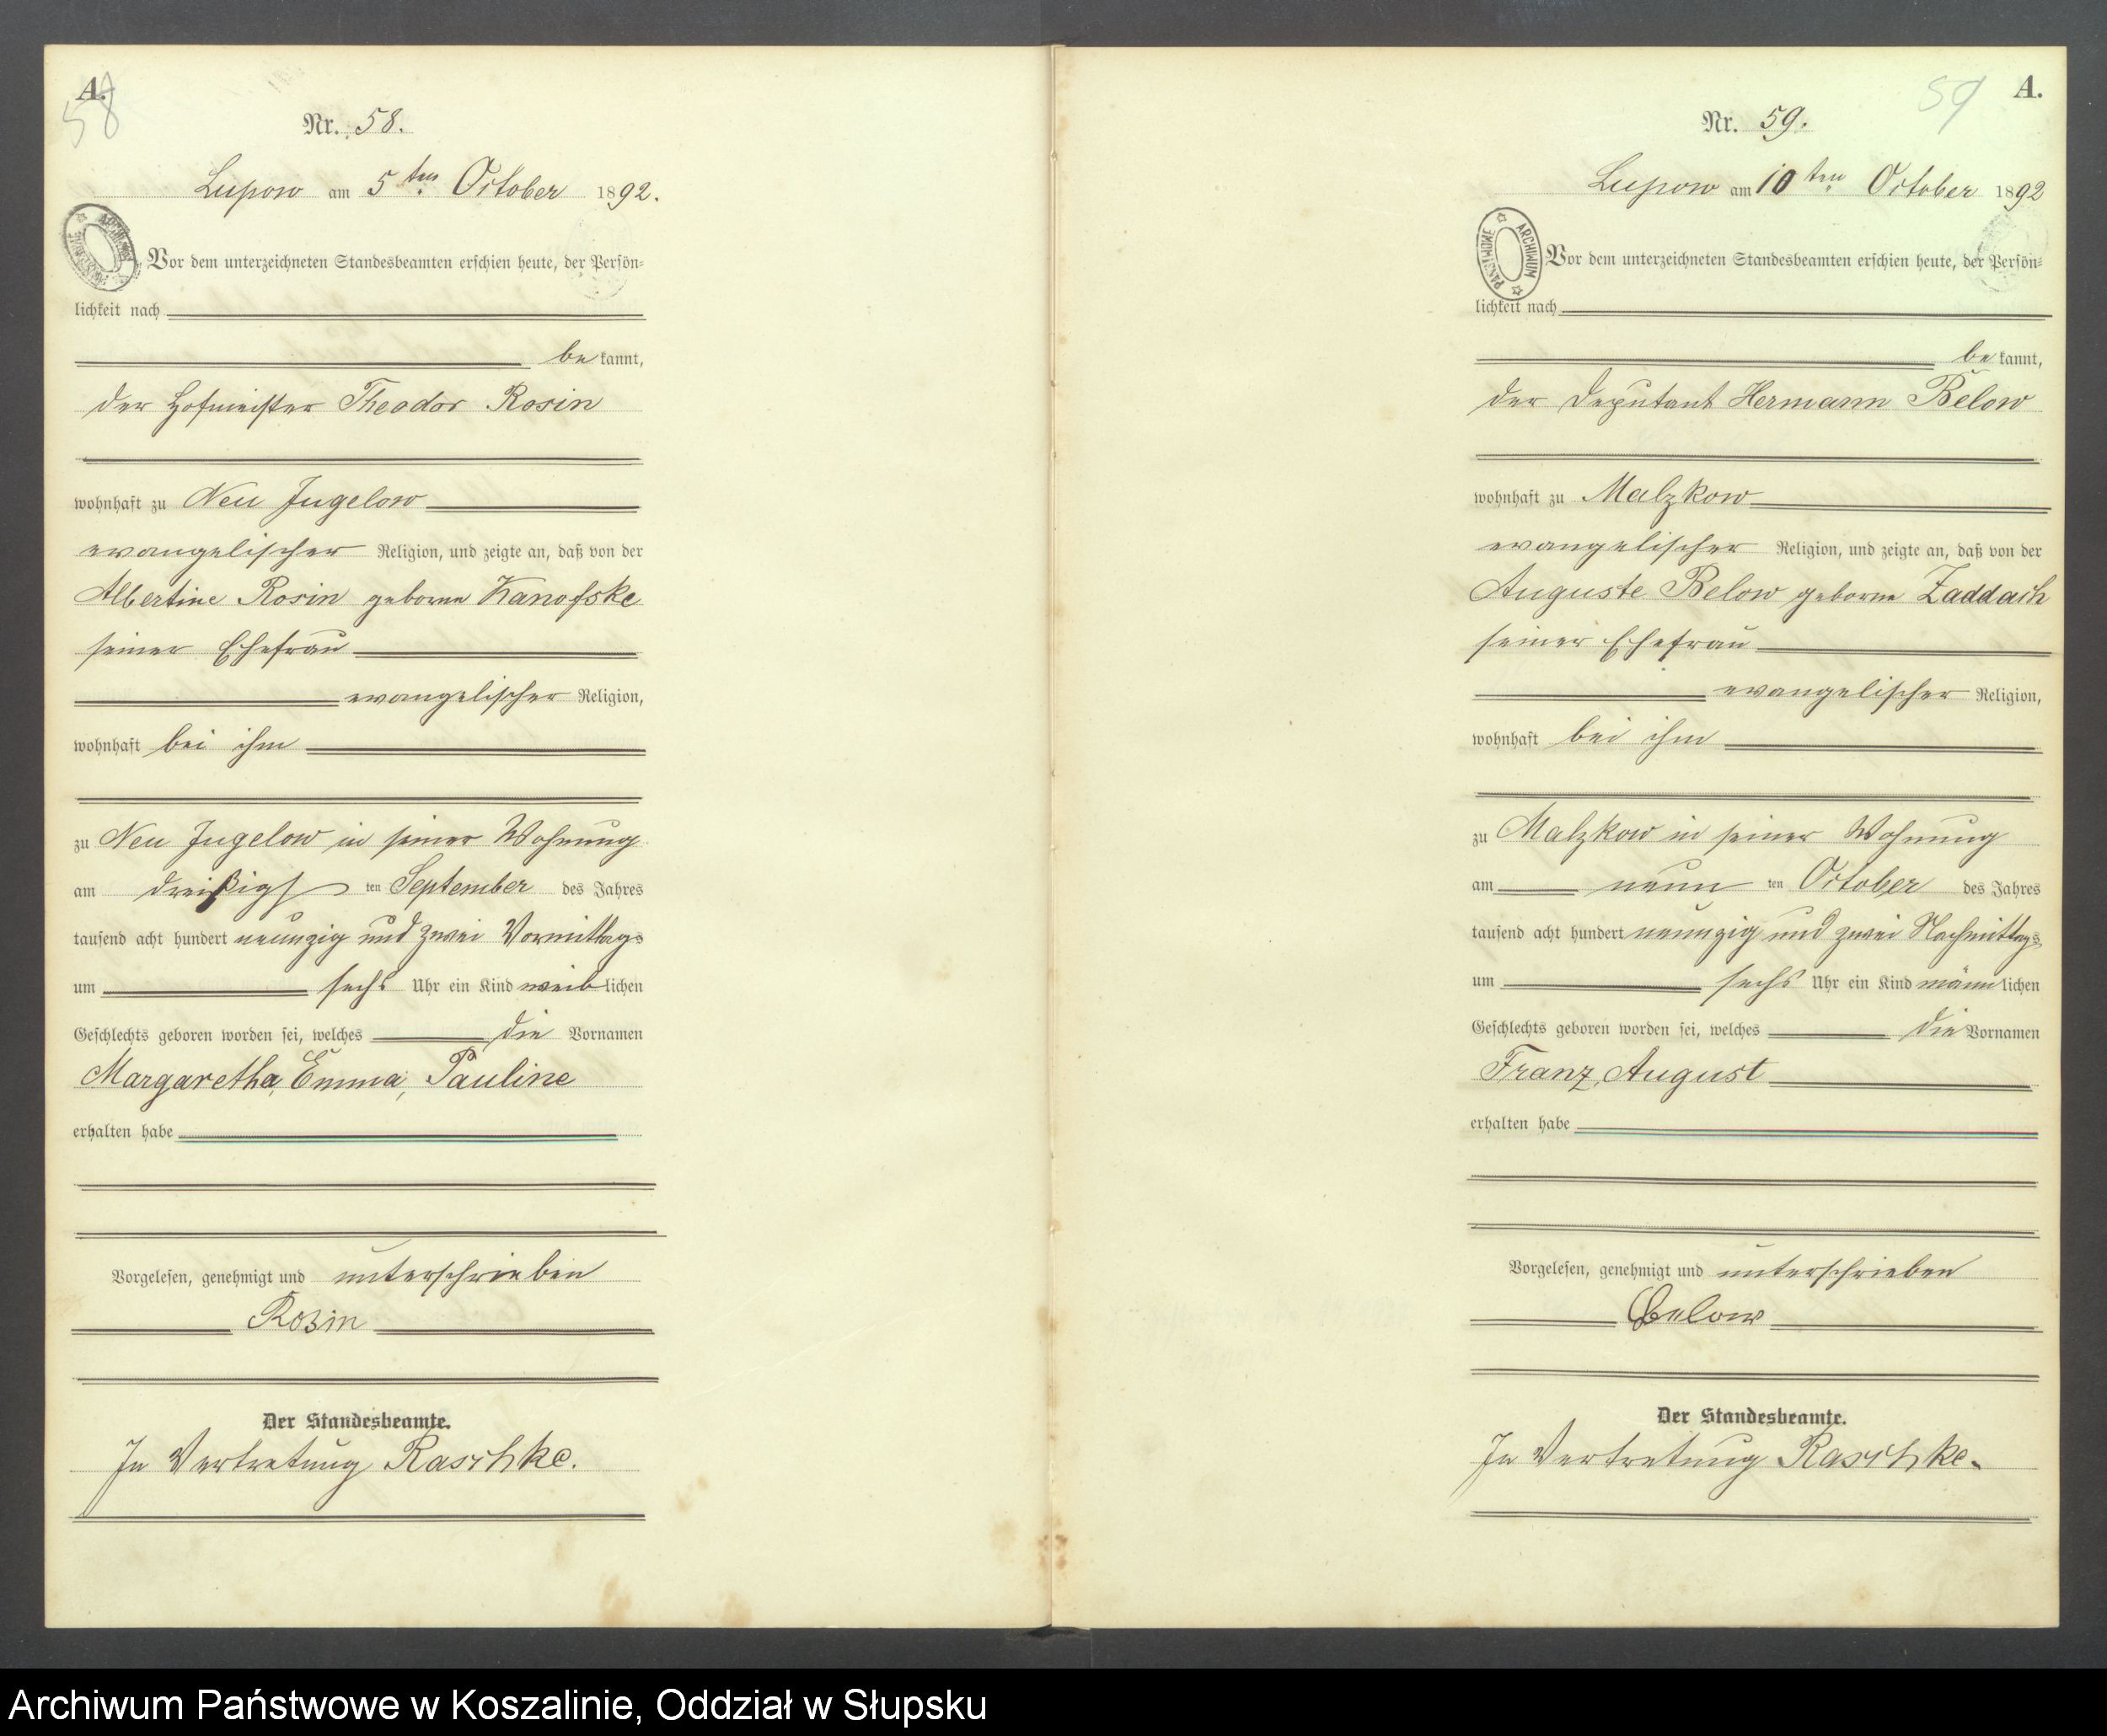 A.
58
Nr. 58.
Lupow am 5ten October 1892.
Vor dem unterzeichneten Standesbeamten erschien heute, der Persön-
lichkeit nach
bekannt,
der Hofmeister Theodor Rosin
wohnhaft zu Neu Jugelow
evangelischer Religion, und zeigte an, daß von der
Albertine Rosin geborne Kanofske
seiner Ehefrau
evangelischer Religion,
wohnhaft bei ihm
zu Neu Jugelow in seiner Wohnung
am dreißigsten September des Jahres
tausend acht hundert neunzig und zwei Vormittags
um sechs Uhr ein Kind weiblichen
Geschlechts geboren worden sei, welches die Vornamen
Margaretha, Emma, Pauline
erhalten habe
Vorgelesen, genehmigt und unterschrieben
Rosin
Der Standesbeamte.
In Vertretung Raschke.
59 A.
Nr. 59.
Lupow am 10ten October 1892
ARCHIWUM PAŃSTWOWE
Vor dem unterzeichneten Standesbeamten erschien heute, der Persön-
lichkeit nach
bekannt,
der Deputant Hermann Below
wohnhaft zu Malzkow
evangelischer Religion, und zeigte an, daß von der
Auguste Below geborne Zaddach
seiner Ehefrau
evangelischer Religion,
wohnhaft bei ihm
zu Malzkow in seiner Wohnung
am neunten October des Jahres
tausend acht hundert neunzig und zwei Nachmittags
um sechs Uhr ein Kind männlichen
Geschlechts geboren worden sei, welches die Vornamen
Franz, August
erhalten habe
Vorgelesen, genehmigt und unterschrieben
Below
Der Standesbeamte.
In Vertretung Raschke.
Archiwum Państwowe w Koszalinie, Oddział w Słupsku